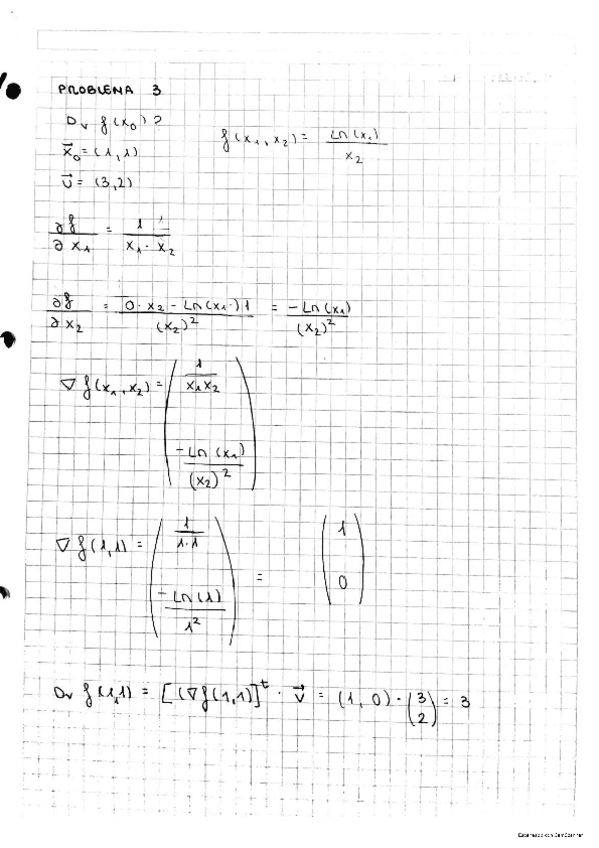 PROBLEMA 3
Dv f(x₀)?
f(x₁, x₂) = Ln(x₁) / x₂
x⃗₀ = (1,1)
v⃗ = (3,2)
∂f/∂x₁ = 1 / (x₁ · x₂)
∂f/∂x₂ = (0 · x₂ - Ln(x₁·)1) / (x₂)² = -Ln(x₁) / (x₂)²
∇f(x₁, x₂) = ( 1 / (x₁x₂) ; -Ln(x₁) / (x₂)² )
∇f(1,1) = ( 1 / (1·1) ; -Ln(1) / 1² ) = ( 1 ; 0 )
Dv f(1,1) = [(∇f(1,1)]ᵗ · v⃗ = (1, 0) · (3 ; 2) = 3
Escaneado con CamScanner